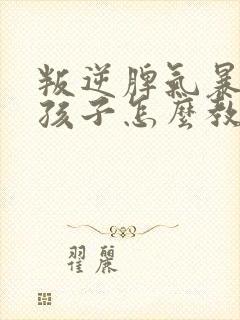 叛逆脾氣暴
孩子怎麼教
翟麗